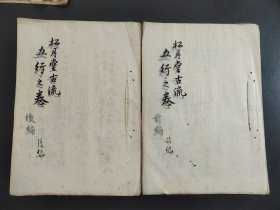 松月堂古流
五行之巻
前編
松月堂古流
五行之巻
後編